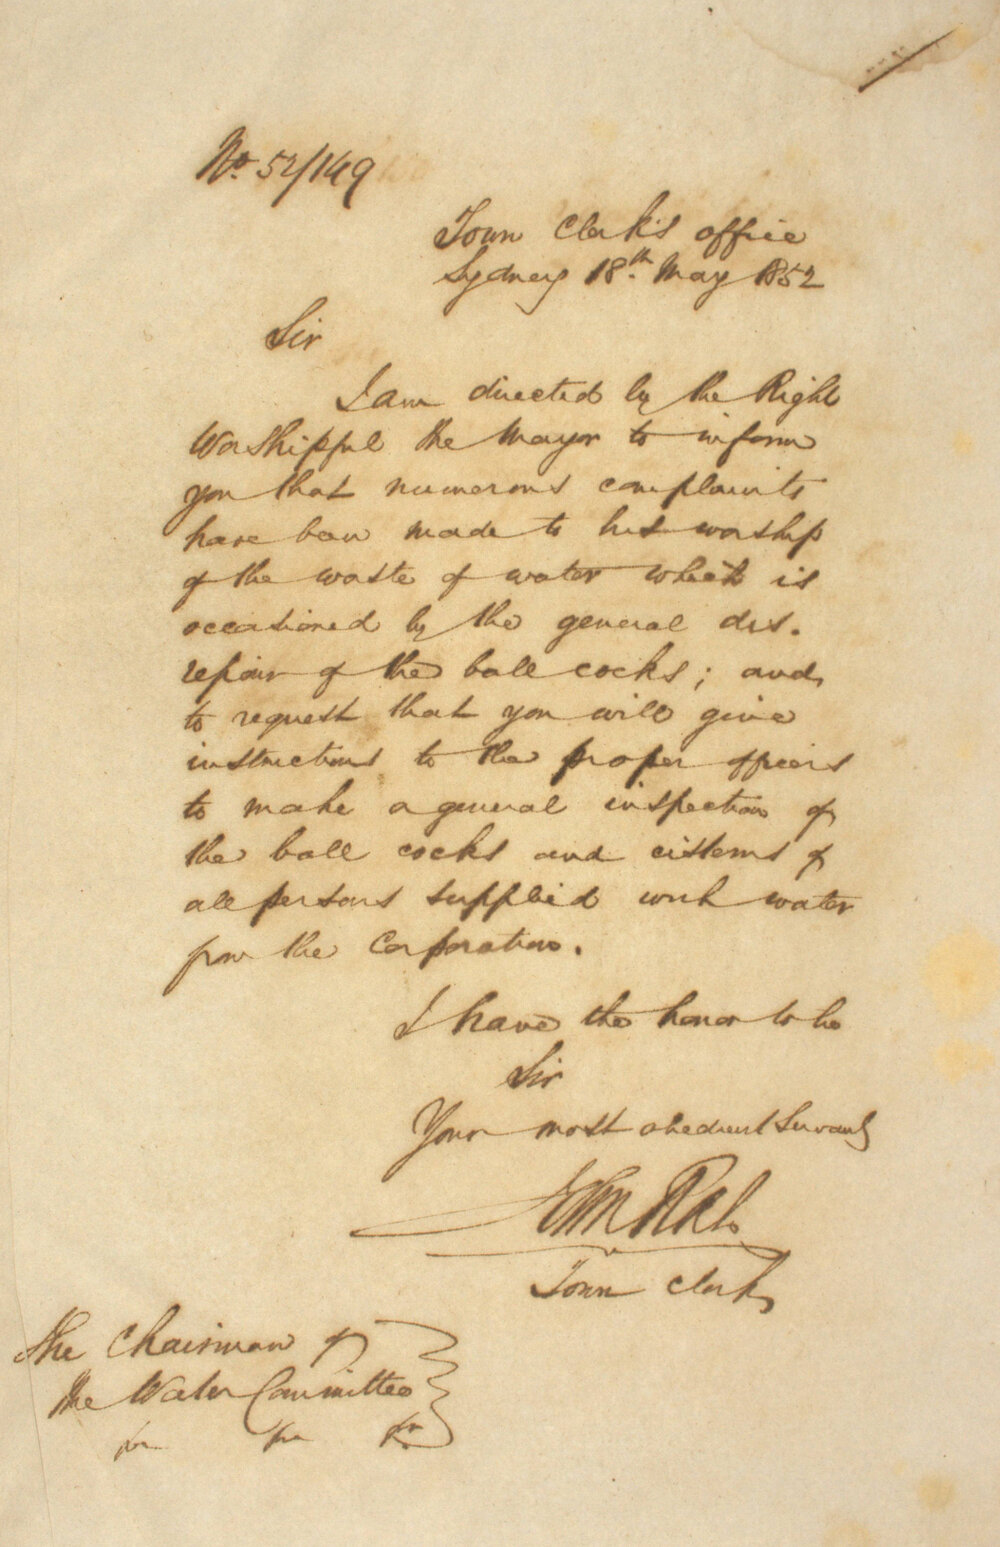 No. 52/149
Town Clerk's office
Sydney 18th. May 1852
Sir
I am directed by the Right
Worshipful the Mayor to inform
you that numerous complaints
have been made to his worship
of the waste of water which is
occasioned by the general dis.
repair of the ball cocks; and
to request that you will give
instructions to the proper officers
to make a general inspection of
the ball cocks and cisterns of
all persons supplied with water
from the Corporation.
I have the honor to be
Sir
Your most obedient Servant
John
Town Clerk
The Chairman of
the Water Committee